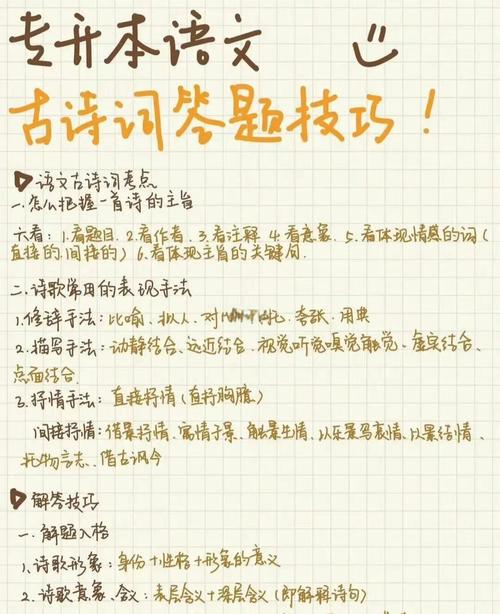 专升本语文
古诗词答题技巧!
语文古诗词考点
一.怎么把握一首诗的主旨
六看:1.看题目.2.看作者.3.看注释 4.看意象.5.看体现情感的词(
直接的.间接的)6.看体现主旨的关键句.
二.诗歌常用的表现手法
1.修辞手法:比喻.拟人.对 夸张.用典
2.描写手法:动静结合、远近结合.视觉听觉嗅觉触觉、虚实结合、
点面结合.
3.抒情手法:直接抒情(直抒胸臆)
间接抒情:借景抒情、寓情于景、触景生情、以乐景写哀情、以景结情、
托物言志、借古讽今
解答技巧
一.解题入格
1.诗歌形象:身份+性格+形象的意义
2.诗歌意象、含义:表层含义+深层含义(即解释诗句)